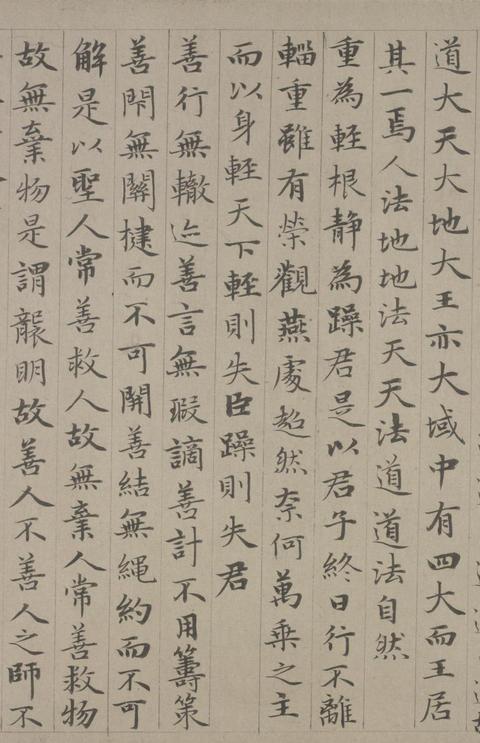 道大天大地大王亦大域中有四大而王居
其一焉人法地地法天天法道道法自然
重為輕根静為躁君是以君子終日行不離
輜重雖有榮觀燕處超然奈何萬乗之主
而以身輕天下輕則失臣躁則失君
善行無轍迹善言無瑕謫善計不用籌策
善閇無關楗而不可開善結無繩約而不可
解是以聖人常善救人故無棄人常善救物
故無棄物是謂襲明故善人不善人之師不